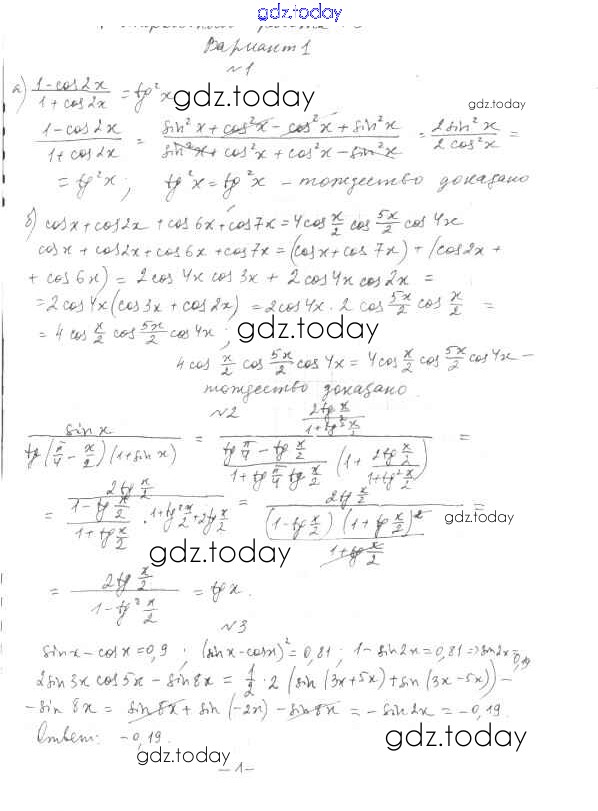 gdz.today
Вариант 1
№1
а) (1-cos2x)/(1+cos2x) = tg²x gdz.today
gdz.today
(1-cos2x)/(1+cos2x) = (sin²x+cos²x-cos²x+sin²x)/(sin²x+cos²x+cos²x-sin²x) = (2sin²x)/(2cos²x) =
= tg²x; tg²x = tg²x - тождество доказано
б) cosx+cos2x+cos6x+cos7x=4cos x/2 cos 5x/2 cos4x
cosx+cos2x+cos6x+cos7x=(cosx+cos7x)+(cos2x+
+cos6x)=2cos4x cos3x+2cos4x cos2x=
=2cos4x(cos3x+cos2x)=2cos4x·2 cos 5x/2 cos x/2 =
=4cos x/2 cos 5x/2 cos4x; gdz.today
4cos x/2 cos 5x/2 cos4x=4cos x/2 cos 5x/2 cos4x-
тождество доказано
№2
sinx/(tg(π/4 - x/2)(1+sinx)) = (2tg x/2/(1+tg² x/2))/((tg π/4 - tg x/2)/(1+tg π/4 tg x/2) (1+ 2tg x/2/(1+tg² x/2))) =
= 2tg x/2/((1-tg x/2)/(1+tg x/2) · 1+tg² x/2+2tg x/2) = 2tg x/2/((1-tg x/2)(1+tg x/2)²/(1+tg x/2)) =
gdz.today
gdz.today
= 2tg x/2/(1-tg² x/2) = tgx.
№3
sinx-cosx=0,9; (sinx-cosx)²=0,81; 1-sin2x=0,81=>sin2x=0,19
2sin3x cos5x-sin8x=1/2·2(sin(3x+5x)+sin(3x-5x))-
-sin8x=sin8x+sin(-2x)-sin8x=-sin2x=-0,19.
Ответ: -0,19.
gdz.today
gdz.today
-1-